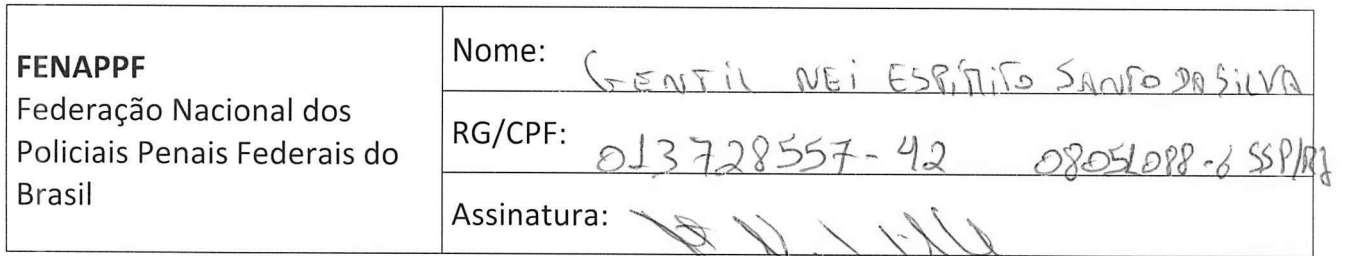 FENAPPF
Federação Nacional dos
Policiais Penais Federais do
Brasil
Nome: GENTIL NEI ESPÍRITO SANTO DA SILVA
RG/CPF: 013728557-42 08051088-6 SSP/RJ
Assinatura: